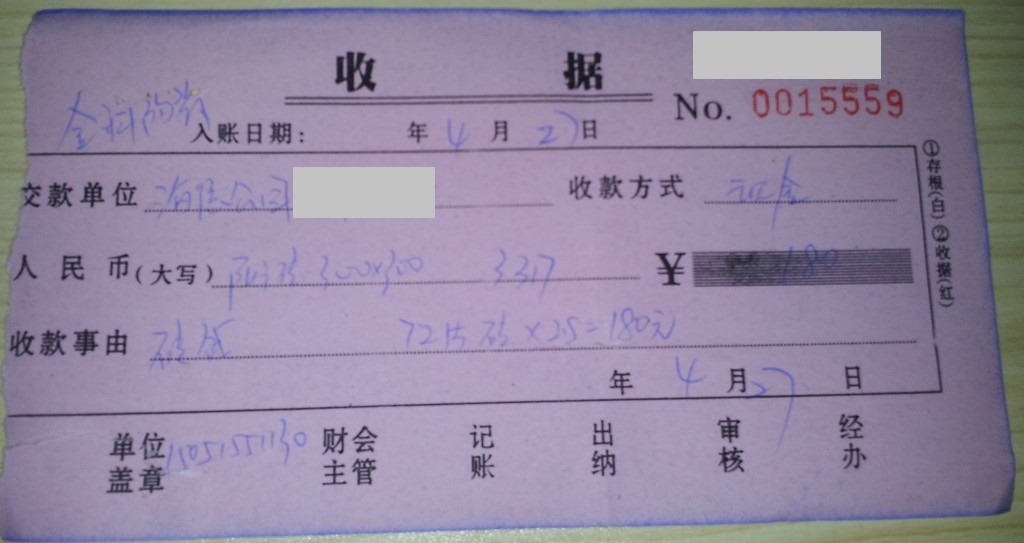 收 据
No. 0015559
入账日期: 年 4 月 27 日
交款单位 收款方式 现金
人民币(大写) 300×300 3317 ¥ 180
收款事由 72片砖×25=180元
年 4 月 27 日
单位盖章 15051551130 财会主管 记账 出纳 审核 经办
①存根(白)②收据(红)